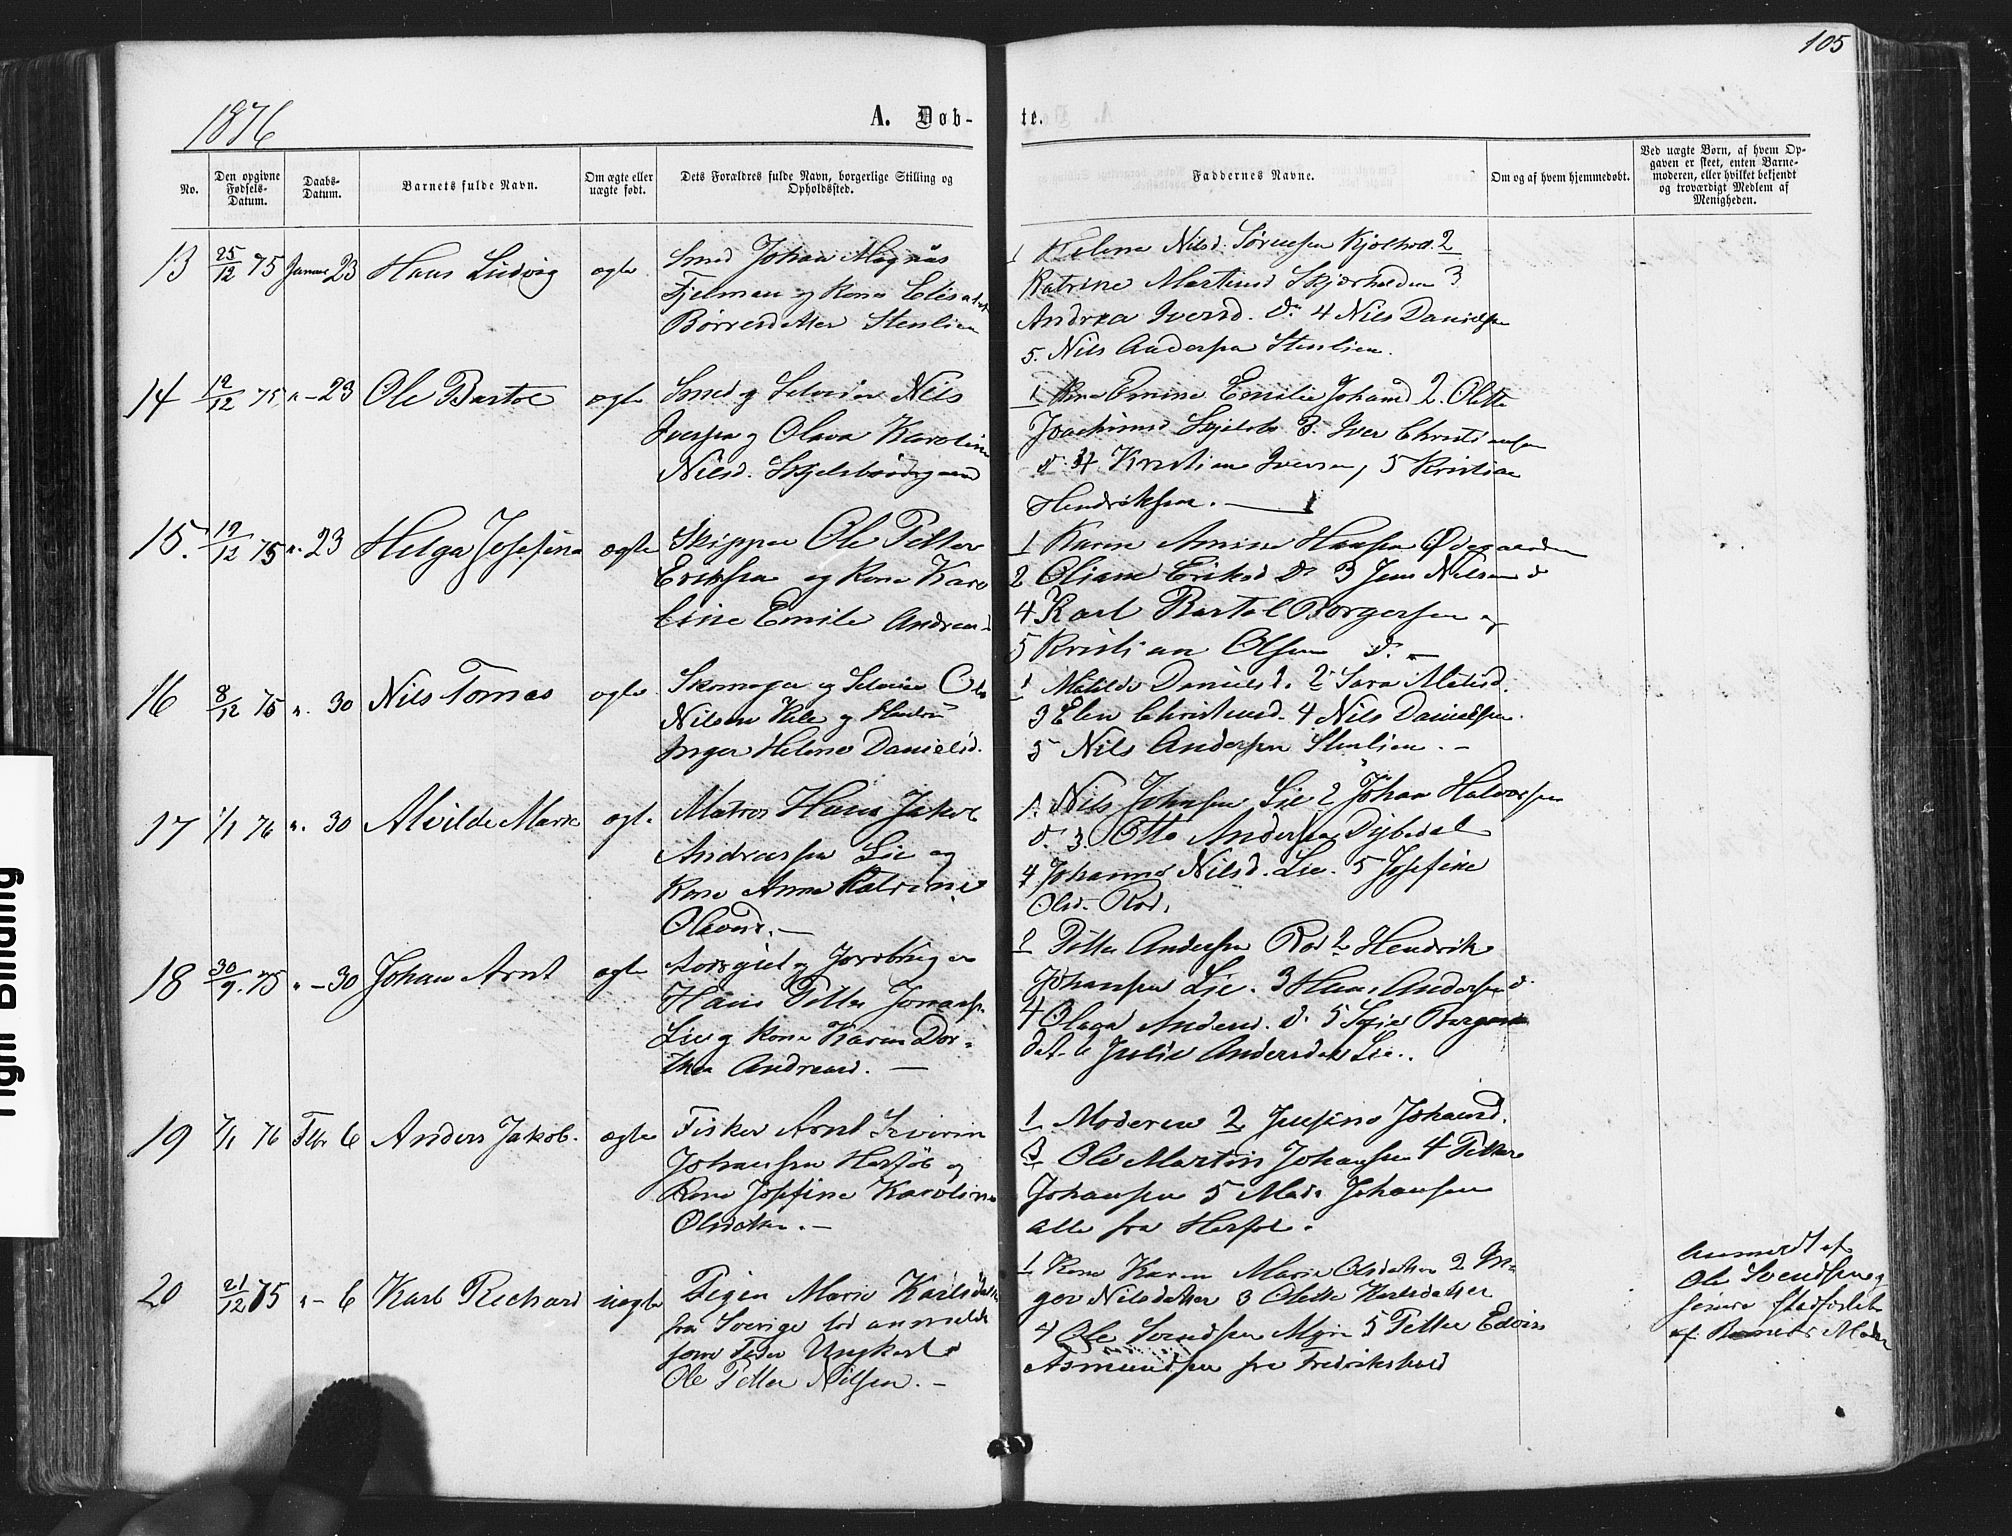 105
1876
A. Døb-
te.
No.
Den opgivne Fødsels-Datum.
Daabs-Datum.
Barnets fulde Navn.
Om ægte eller uægte født.
Dets Forældres fulde Navn, borgerlige Stilling og Opholdssted.
Faddernes Navne.
Om og af hvem hjemmedøbt.
Ved uægte Børn, af hvem Opgaven er skeet, enten Barnemoderen, eller hvilket bekjendt og troværdigt Medlem af Menigheden.
13 25/12 75 Januar 23 Hans Ludvig ægte
Smed Johan Magnus
Fjelman og Kone Elisabet
Børresdatter Stenlien
1 Helene Nilsd. Sørensen 2
Katrine Martinsd Skjærhalden 3
Andrea Iversd. do 4 Nils Danielsen
5. Nils Andersen Stenlien.
14 12/12 75 " - 23 Ole Bartol ægte
Smed og Selveier Nils
Iversen og Olava Karoline
Nilsd. Skjelsbu
1 Kone Emine Emilie Johansd 2. Olette
Joachimsd Skjelsbo 3. Iver Christiansen
d. 4 Kristian Iversen, 5 Kristian
Hendriksen. —
15. 19/12 75 ". 23 Helga Josefina ægte
Skipper Ole Petter
Eriksen og Kone Karo
line Emilie Andreasd
1 Karen Amine Hansen Ødegaarden
2 Oliane Eriksd do 3 Jens Nilsen d
4 Karl Bartol Borgersen og
5 Kristian Olsen d. —
16 8/12 75 ". 30 Nils Tomas ægte
Skomager og Selveier Ole
Nilsen Kile og Hustru
Inger Helene Danielsd.
1 Matilde Danielsd. 2 Sara Matisd.
3 Elen Christensd. 4 Nils Danielsen.
5 Nils Andersen Stenlien. -
17 1/1 76 ". 30 Alvilde Marie ægte
Matros Hans Jakob
Andreassen Lie og
Kone Anne Katrine
Olavesd. —
1. Nils Johnsen Lie 2 Johan Halvorsen
d. 3. Otto Andersen Dybedal
4 Johanne Nilsd. Lie. 5 Josefine
Olsd. Rød.
18 30/9. 75 " - 30 Johan Arnt ægte
og Jordbruger
Hans Petter Johansen
Lie og Kone Karen Dor-
thea Andreasd. —
1 Petter Andersen Rød 2 Hendrik
Johansen Lie. 3 Hans Andersen d.
4 Olava Andersd. d. 5 Sofie Borgers
dat. 6 Julie Andersdat Lie.
19 7/1 76 Febr 6 Anders Jakob. ægte
Fisker Arnt Severin
Johansen Herføl og
Kone Josefine Karoline
Olsdatter. -
1 Moderen 2 Josefine Johansd.
3 Ole Martin Johansen 4 Petter
Johansen 5 Mads Johansen
alle fra Herføl.
20 21/12 75 " - 6 Karl Richard uægte
Pigen Marie Karlsdatter
fra Sverige lod anmelde
som Fader Ungkarl
Ole Petter Nilsen. -
1 Kone Karen Marie Olsdatter 2 In-
ger Nilsdatter 3 Olette Karlsdatter
4 Ole Svendsen Myre 5 Petter Edvin
Asmundsen fra Fredrikshald
Anmeldt af
Ole Svendsen og
senere stadfæstet
af Barnets Moder
Tight Binding